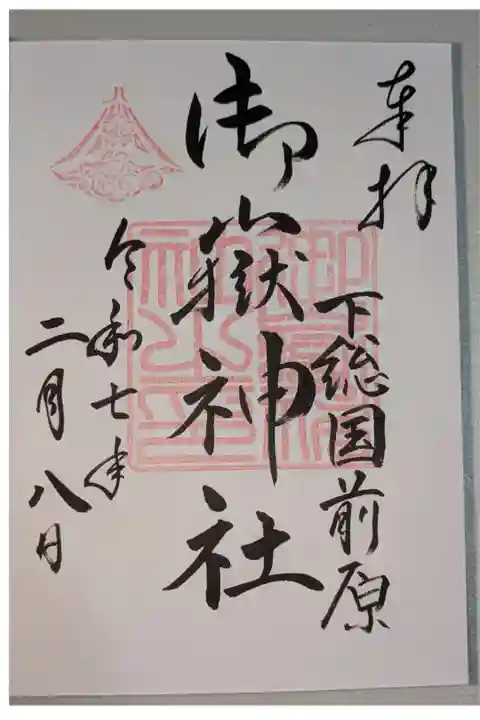 奉拝
下総国前原
御嶽神社
令和七年
二月八日